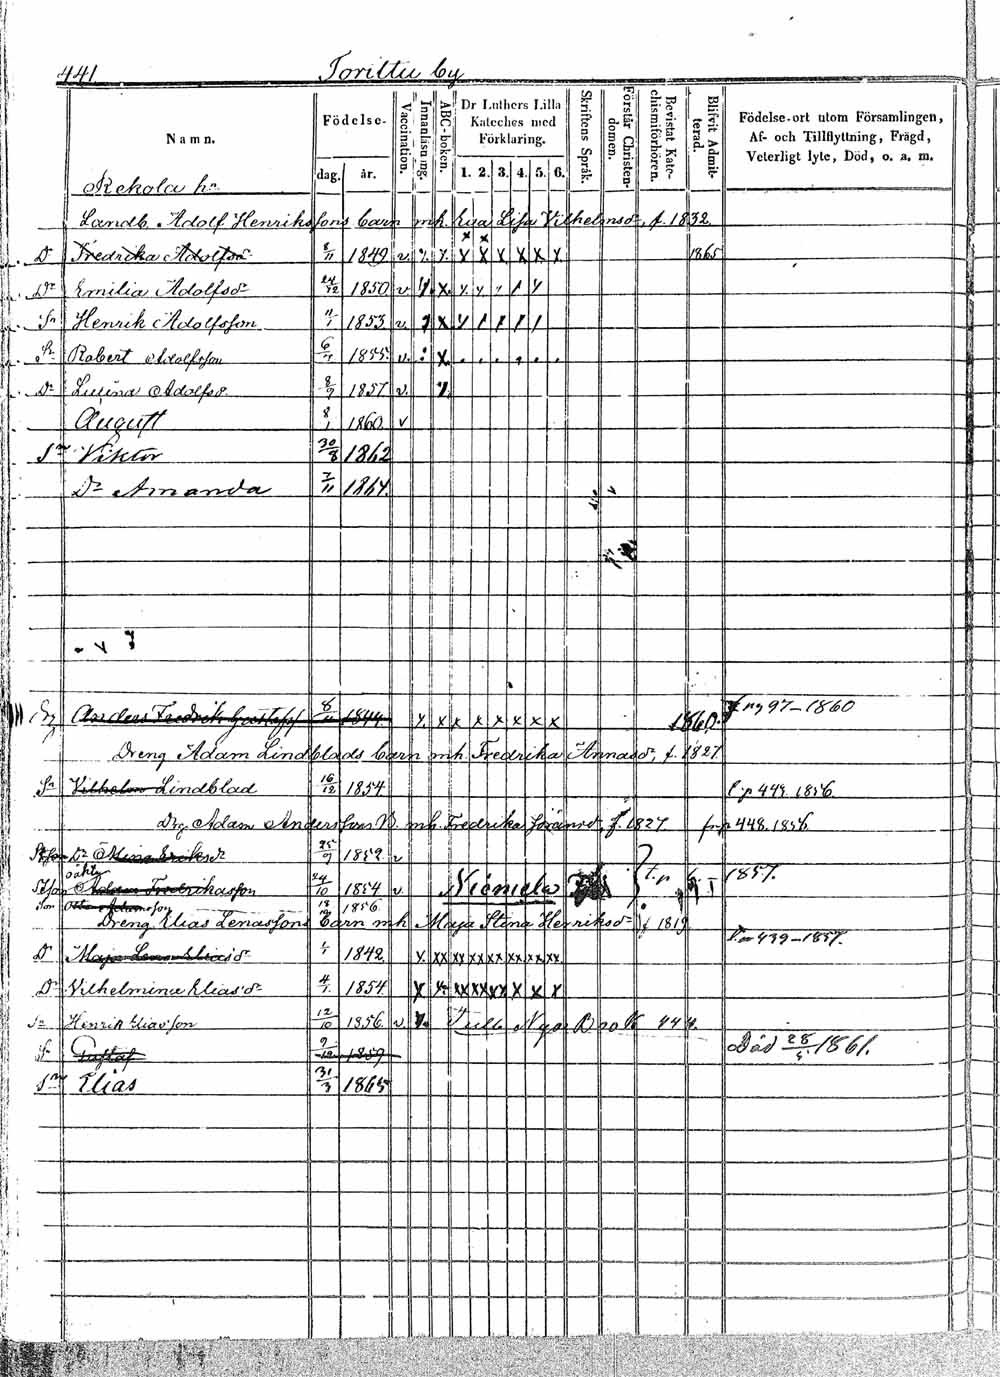 441 Torittu by
Namn. Födelse- dag. år. Vaccination. Innanläsning. ABC-boken. Dr Luthers Lilla Kateches med Förklaring. 1. 2. 3. 4. 5. 6. Skriftens Språk. Förstår Christendomen. Bevistat Katechismiförhören. Blifvit Admitterad. Födelse-ort utom Församlingen, Af- och Tillflyttning, Frägd, Veterligt lyte, Död, o. a. m.
Rekola hn
Landb. Adolf Henrikssons barn mh. Eva Lisa Vilhelmsdr, f. 1832
Dr Fredrika Adolfsdr 8/11 1849 v. x x x x x x 1865
Dr Emilia Adolfsdr 24/12 1850 v
Sn Henrik Adolfsson 11/1 1853 v.
Sn Robert Adolfsson 6/11 1855 v.
Dr Lusina Adolfsdr 8/9 1857 v.
August 8/1 1860 v
Sn Viktor 30/8 1862
Dr Amanda 7/11 1864
Anders Fredrik Gustafss 8/11 1844 x x x x x x x 1860. 97-1860
Dreng Adam Lindblads barn mh. Fredrika Annasdr, f. 1827
Sn Vilhelm Lindblad 16/12 1854 t. p 449. 1856
Drg Adam Anderssons B. mh. Fredrika Göransdr f. 1827 fr. p 448. 1856
Dr Mina Eriksdr 25/9 1852 v
oäkta Adam Fredrikasson 24/10 1854 v. Niemela t. p 1857.
Son Otto Adamsson 18 1856
Dreng Elias Lenassons barn mh Maja Stina Henriksdr f 1819
Dr Maja Lena Eliasdr 1842 439-1857.
Dr Vilhelmina Eliasdr 4/1 1854
Sn Henrik Eliasson 12/10 1856 v. Nya Bok 444.
Sn Gustaf 9/12 1859 Död 28/5 1861.
Sn Elias 31/3 1865